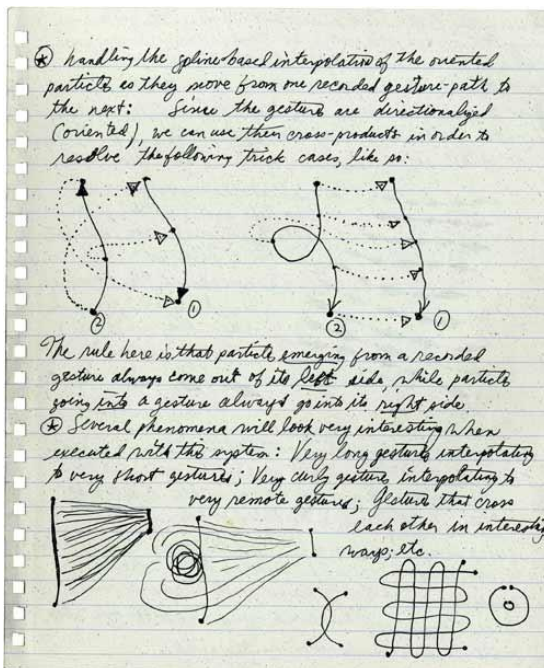 ⊛ handling the spline-based interpolation of the oriented
particles as they move from one recorded gesture-path to
the next: Since the gestures are directionalized
(oriented), we can use their cross-products in order to
resolve the following trick cases, like so:
② ① ② ①
The rule here is that particles emerging from a recorded
gesture always come out of its left side, while particles
going into a gesture always go into its right side.
⊛ Several phenomena will look very interesting when
executed with the system: Very long gestures interpolating
to very short gestures; Very curly gestures interpolating to
very remote gestures; Gestures that cross
each other in interesting
ways; etc.